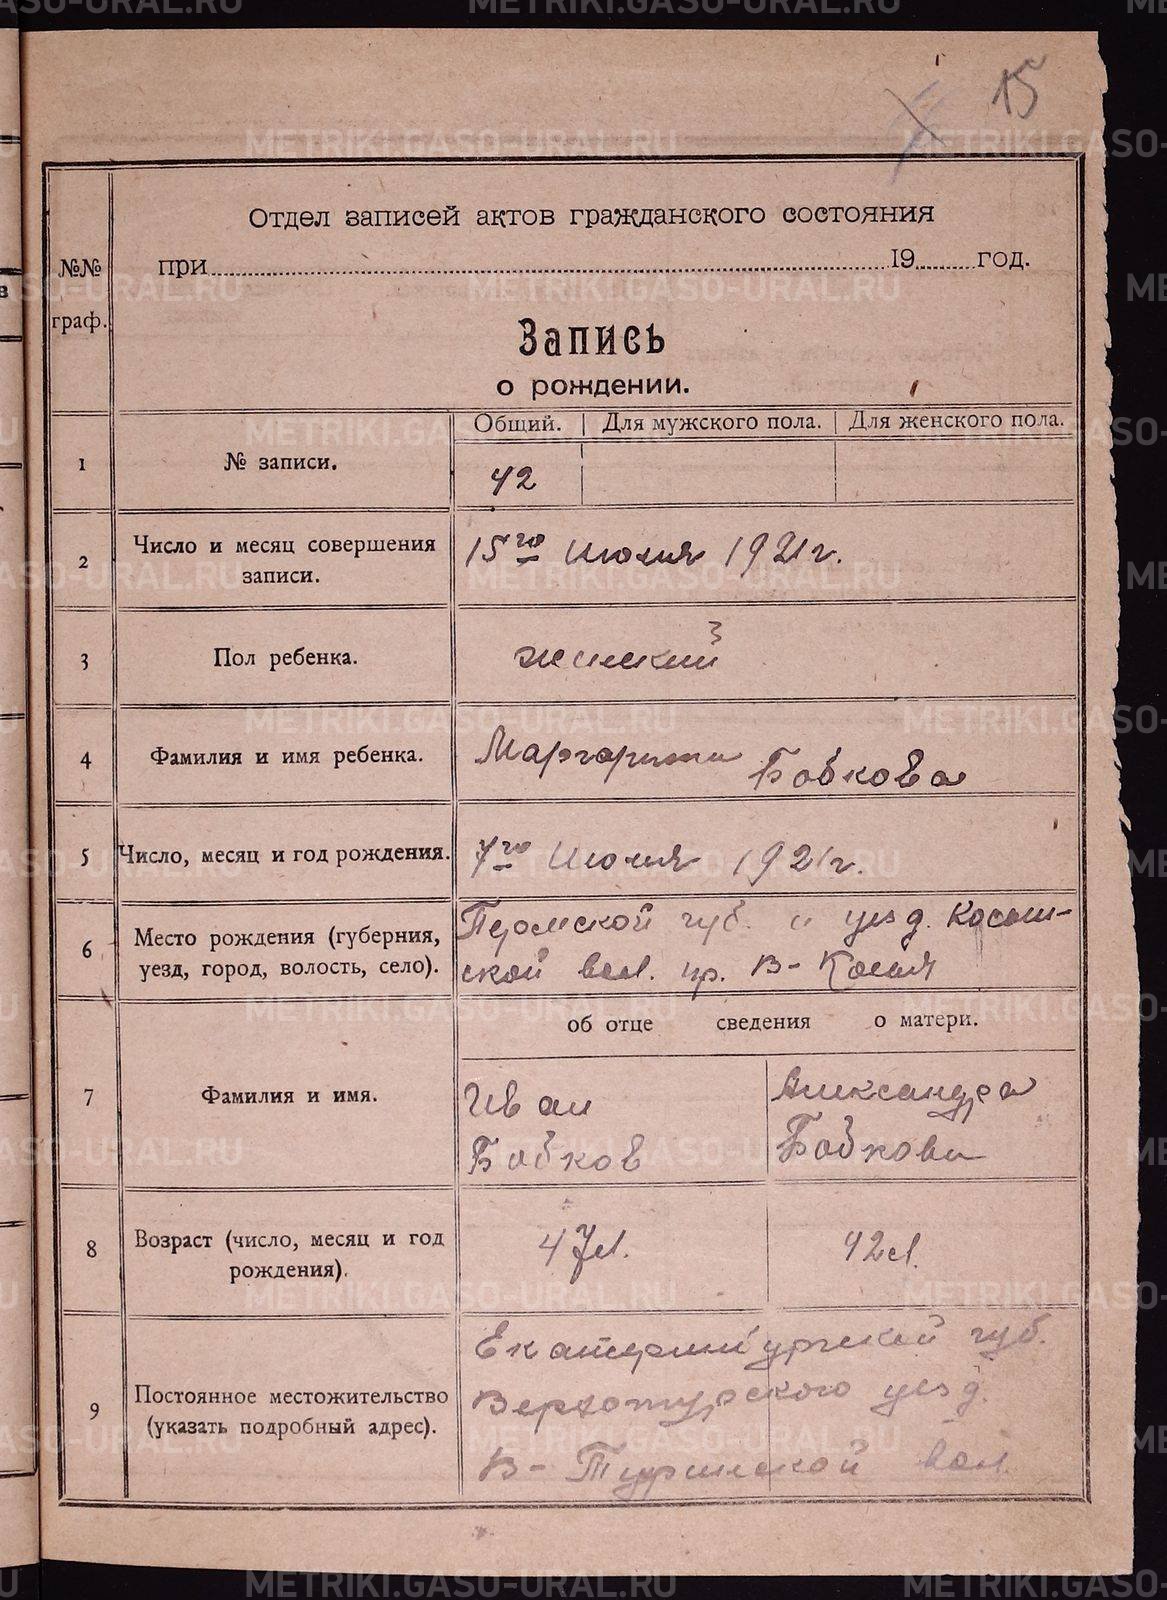 15
Отдел записей актов гражданского состояния
при 19 год.
№№ граф.
Запись
о рождении.
Общий. Для мужского пола. Для женского пола.
1 № записи. 42
2 Число и месяц совершения записи. 15го Июля 1921 г.
3 Пол ребенка. женский
4 Фамилия и имя ребенка. Маргарита Бобкова
5 Число, месяц и год рождения. 7го Июля 1921 г.
6 Место рождения (губерния, уезд, город, волость, село). Пермской губ. и уезд.
ской вол. пр. В-
об отце сведения о матери.
7 Фамилия и имя. Иван Александра
Бобков Бобкова
8 Возраст (число, месяц и год рождения). 47 л. 42 л.
9 Постоянное местожительство (указать подробный адрес). Екатеринбургской губ.
Верхотурского уезд.
В-Туринской вол.
METRIKI.GASO-URAL.RU